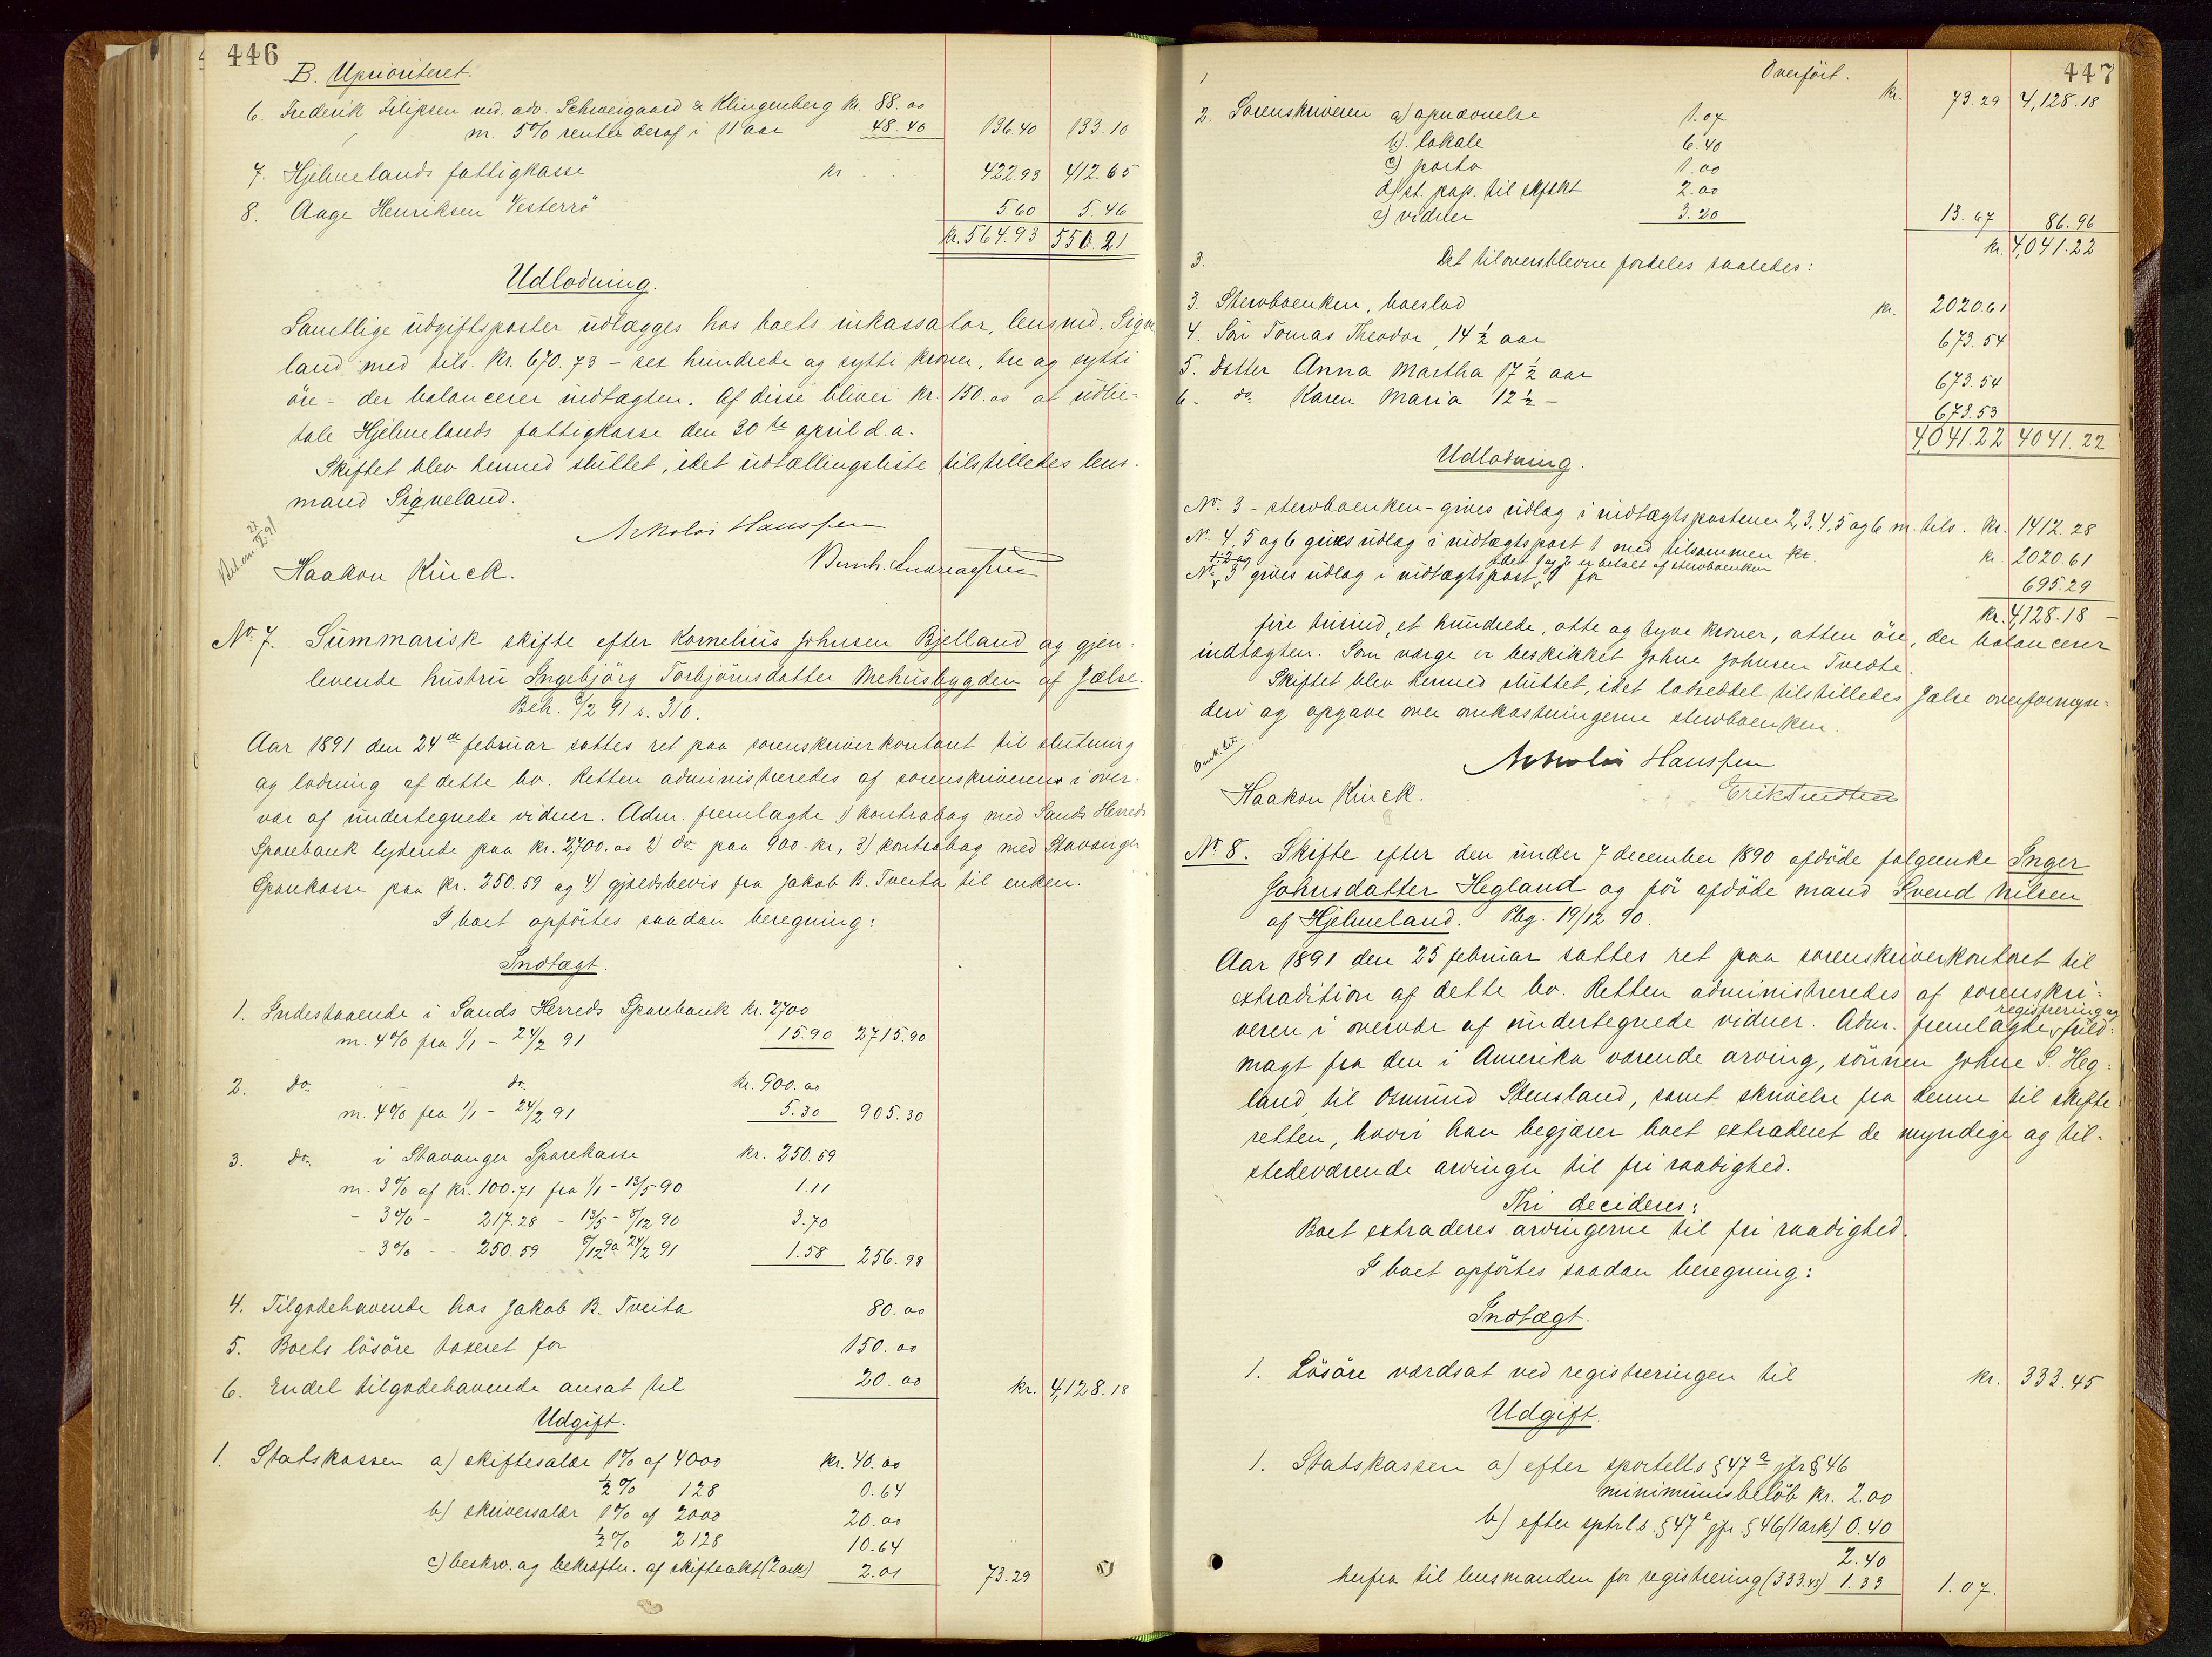 446
B. Uprioriteret.
6. Frederik Filipsen ved adv. Schweigaard & Klingenberg kr. 88.00
m. 5% renter deraf i 11 aar 48.40 136.40 133.10
7. Hjelmelands fattigkasse kr 422.93 412.65
8. Aage Henriksen Vesterrö 5.60 5.46
kr. 564.93 550.21
Udlodning.
Samtlige udgiftsposter udlægges hos boets inkassator, lensmd. Sigve
land med tils. kr. 670.73 - sex hundrede og sytti kroner, tre og sytti
öre - der balancerer indtægten. Af disse bliver kr. 150.00 at udbe-
tale Hjelmelands fattigkasse den 30te april d.a.
Skiftet blev hermed sluttet, idet udtællingsliste tilstilledes lens-
mand Sigveland.
Nikolai Hanssen
Haakon Kinck. Bernh. Andreassen
No. 7. Summarisk skifte efter Kornelius Johnsen Bjelland og gjen-
levende hustru Ingebjörg Torbjörnsdatter Mehusbygden af Jælse.
Beh. 6/2 91 s. 310.
Aar 1891 den 24de februar sattes ret paa sorenskriverkontoret til slutning
og lodning af dette bo. Retten administreredes af sorenskriveren i over-
vær af undertegnede vidner. Adm. fremlagde 1) kontrabog med Sands Herreds
Sparebank lydende paa kr. 2,700.00 2) do paa 900 kr., 3) kontrabog med Stavanger
Sparekasse paa kr. 250.59 og 4) gjældsbevis fra Jakob B. Tveita til enken.
I boet opförtes saadan beregning:
Indtægt.
1. Indestaaende i Sands Herreds Sparebank kr. 2700
m. 4% fra 1/1 - 24/2 91 15.90 2715.90
2. do. do. kr. 900.00
m. 4% fra 1/1 - 24/2 91 5.30 905.30
3. do. i Stavanger Sparekasse kr. 250.59
m. 3% af kr. 100.71 fra 1/1 - 13/5 90 1.11
- 3% - 217.28 - 13/5 - 6/12 90 3.70
- 3% - - 250.59 6/12 90 24/2 91 1.58 256.98
4. Tilgodehavende hos Jakob B. Tveita 80.00
5. Boets lösöre taxeret for 150.00
6. Endel tilgodehavende ansat til 20.00 kr. 4,128.18
Udgift.
1. Statskassen a) skiftesalær 1% af 4000 kr. 40.00
1/2% 128 0.64
b) skriversalær 1% af 2000 20.00
1/2% 2128 10.64
c) beskrv. og bekræftn. af skifteakt (2 ark) 2.01 73.29
447
Overfört. kr. 73.29 4,128.18
2. Sorenskriveren a) opnævnelse 1.07
b). lokale 6.40
c) porto 1.00
d) st. pap. til skftakt 2.00
e) vidner 3.20 13.67 86.96
kr. 4,041.22
3. Det tiloversblevne fordeles saaledes:
3. Stervboenken, boeslod kr. 2020.61
4. Sön Tomas Theodor, 14 1/2 aar 673.54
5. Datter Anna Martha 17 1/2 aar 673.54
6. do. Karen Maria 12 1/2 - 673.53
4,041.22 4041.22
Udlodning.
No. 3 - stervboenken - gives udlæg i indtægtsposterne 2, 3, 4, 5 og 6 m. tils. kr. 1412.28
No. 4, 5 og 6 gives udlæg i indtægtspost 1 med tilsammen kr. kr. 2020.61
1, 2 og idet 1 og 2 er betalt af stervboenken
No. 3 gives udlæg i indtægtspost 1 for 695.29
kr. 4,128.18
fire tusind, et hundrede, otte og tyve kroner, atten öre, der balancerer
indtægten. Som værge er beskikket Johne Johnsen Tvedte.
Skiftet blev hermed sluttet, idet lodseddel tilstilledes Jælse overformyn-
deri og opgave over omkostningerne stervboenken.
Nikolai Hanssen
Haakon Kinck.
No. 8. Skifte efter den under 7 december 1890 afdöde folgeenke Inger
Johnsdatter Hegland og för afdöde mand Svend Nilsen
af Hjelmeland. Pbg. 19/12 90.
Aar 1891 den 25 februar sattes ret paa sorenskriverkontoret til
extradition af dette bo. Retten administreredes af sorenskri-
registrering og
veren i overvær af undertegnede vidner. Adm. fremlagde fuld-
magt fra den i Amerika værende arving, sönnen Johne S. Heg-
land, til Osmund Stensland, samt skrivelse fra denne til skifte
retten, hvori han begjærer boet extraderet de myndige og til-
stedeværende arvinger til fri raadighed.
Thi decideres:
Boet extraderes arvingerne til fri raadighed.
I boet opförtes saadan beregning:
Indtægt.
1. Lösöre værdsat ved registreringen til kr. 333.45
Udgift.
1. Statskassen a) efter sportells § 47 a jfr § 46
minimumsbelöb kr. 2.00
b) efter sptrls. § 47 a jfr. § 46 (1 ark) 0.40
2.40
herfra til lensmanden for registrering (333.45) 1.33 1.07.